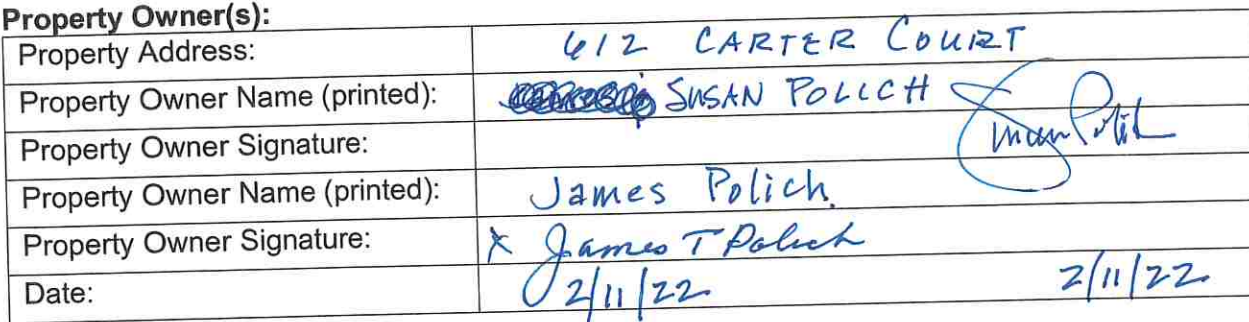 Property Owner(s):
Property Address: 612 CARTER COURT
Property Owner Name (printed): SUSAN POLICH
Property Owner Signature: Susan Polich
Property Owner Name (printed): James Polich
Property Owner Signature: X James T Polich
Date: 2/11/22 2/11/22